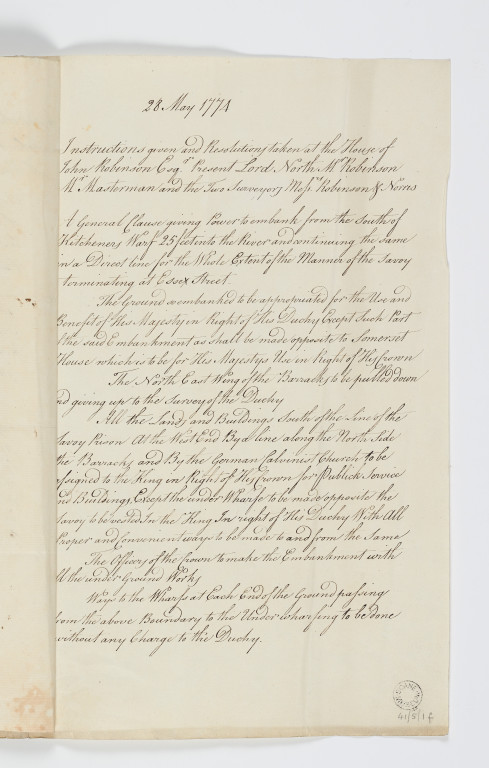 28 May 1774
Instructions given and Resolutions taken at the House of
John Robinson Esqr. Present Lord North Mr Robinson
Mr Masterman and the Two Surveyors Messrs Robinson & Norris
A General Clause giving Power to embank from the South of
Kitcheners Warf 25 feet into the River and continuing the same
in a Direct line for the Whole Extent of the Manner of the Savoy
terminating at Essex Street.
The Ground so embanked to be appropriated for the Use and
Benefit of His Majesty in Right of His Duchy Except Such Part
of the said Embankment as shall be made opposite to Somerset
House which is to be for His Majestys Use in Right of His Crown
The North East Wing of the Barracks to be pulled down
and giving up to the Survey of the Duchy
All the Lands and Buildings South of the Line of the
Savoy Prison At the West End By a line along the North Side
the Barracks and By the German Calvinist Church to be
assigned to the King in Right of His Crown for Publick Service
and Buildings, Except the under Wharfe to be made opposite the
Savoy to be vested In the King In right of His Duchy With All
Proper and Convenient ways to be made to and from the Same
The Officers of the Crown to make the Embankment with
All the under Ground Works
Ways to the Wharfs at Each End of the Ground passing
from the above Boundary to the Under wharfing to be done
without any Charge to the Duchy.
41/5/1f